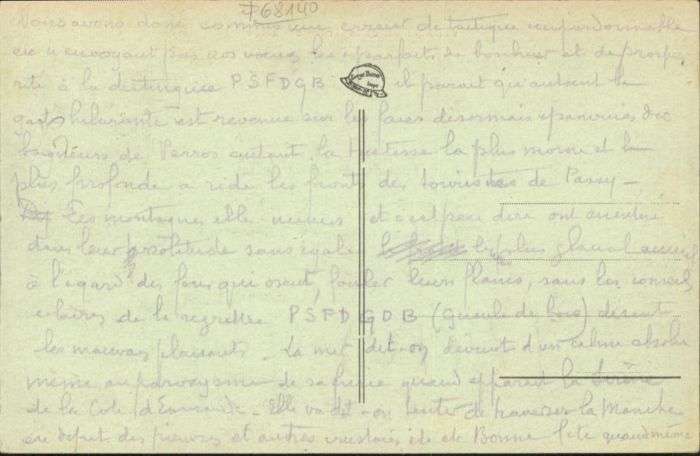 768140
Nous avons donc commis une erreur de tactique impardonnable
en n'envoyant pas nos vœux les parfaits de bonheur et de prospé
rité à la distinguée PSFDGB il parait qu'autant la
gaité hilarante est revenue sur les faces désormais épanouies des
baigneurs de Perros autant la tristesse la plus morne et la
plus profonde a ridé les fronts des touristes de Passy —
Les montagnes elle mêmes et c'est peu dire ont
dans leur solitude sans égale les plus glacial
à l'égard des fous qui osent fouler leurs flancs, sans les conseils
éclairés de la regrettée PSFDGDB (Gueule de bois) disent
les mauvais plaisants. La mer dit-on devient d'un calme absolu
même au paroxysme de sa furie quand apparait la Sirène
de la Cote d'Emeraude. Elle va dit-on tenter de traverser la Manche
en dépit des pieuvres et autres crustacés et Bonne fête quand même